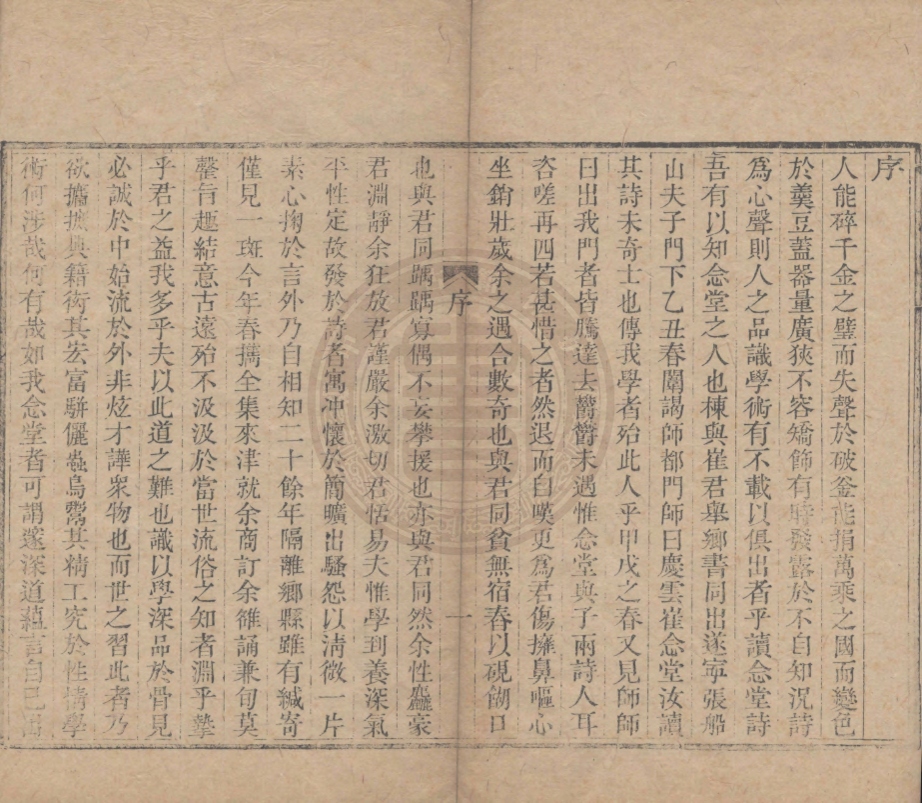 序
人能碎千金之璧而失聲於破釜能捐萬乘之國而變色
於羹豆蓋器量廣狹不容矯飾有時發露於不自知況詩
爲心聲則人之品識學術有不載以俱出者乎讀念堂詩
吾有以知念堂之人也棟與崔君舉鄉書同出遂寧張船
山夫子門下乙丑春闈謁師都門師曰慶雲崔念堂汝讀
其詩未奇士也傳我學者殆此人乎甲戌之春又見師師
曰出我門者皆騰達去鬱鬱未遇惟念堂與子兩詩人耳
咨嗟再四若甚惜之者然退而自嘆更爲君傷擁鼻嘔心
坐銷壯歲余之遇合數奇也與君同貧無宿舂以硯餬口
序
一
也與君同踽踽寡偶不妄攀援也亦與君同然余性麤豪
君淵靜余狂放君謹嚴余激切君恬易夫惟學到養深氣
平性定故發於詩者寓冲懷於簡曠出騷怨以清微一片
素心掬於言外乃自相知二十餘年隔離鄉縣雖有緘寄
僅見一斑今年春攜全集來津就余商訂余雒誦兼旬莫
罄旨趣結意古遠殆不汲汲於當世流俗之知者淵乎摯
乎君之益我多乎夫以此道之難也識以學深品於骨見
必誠於中始流於外非炫才譁衆物也而世之習此者乃
欲擴摭典籍衒其宏富駢儷蟲鳥鶩其精工究於性情學
術何涉哉何有哉如我念堂者可謂邃深道蘊言自己出